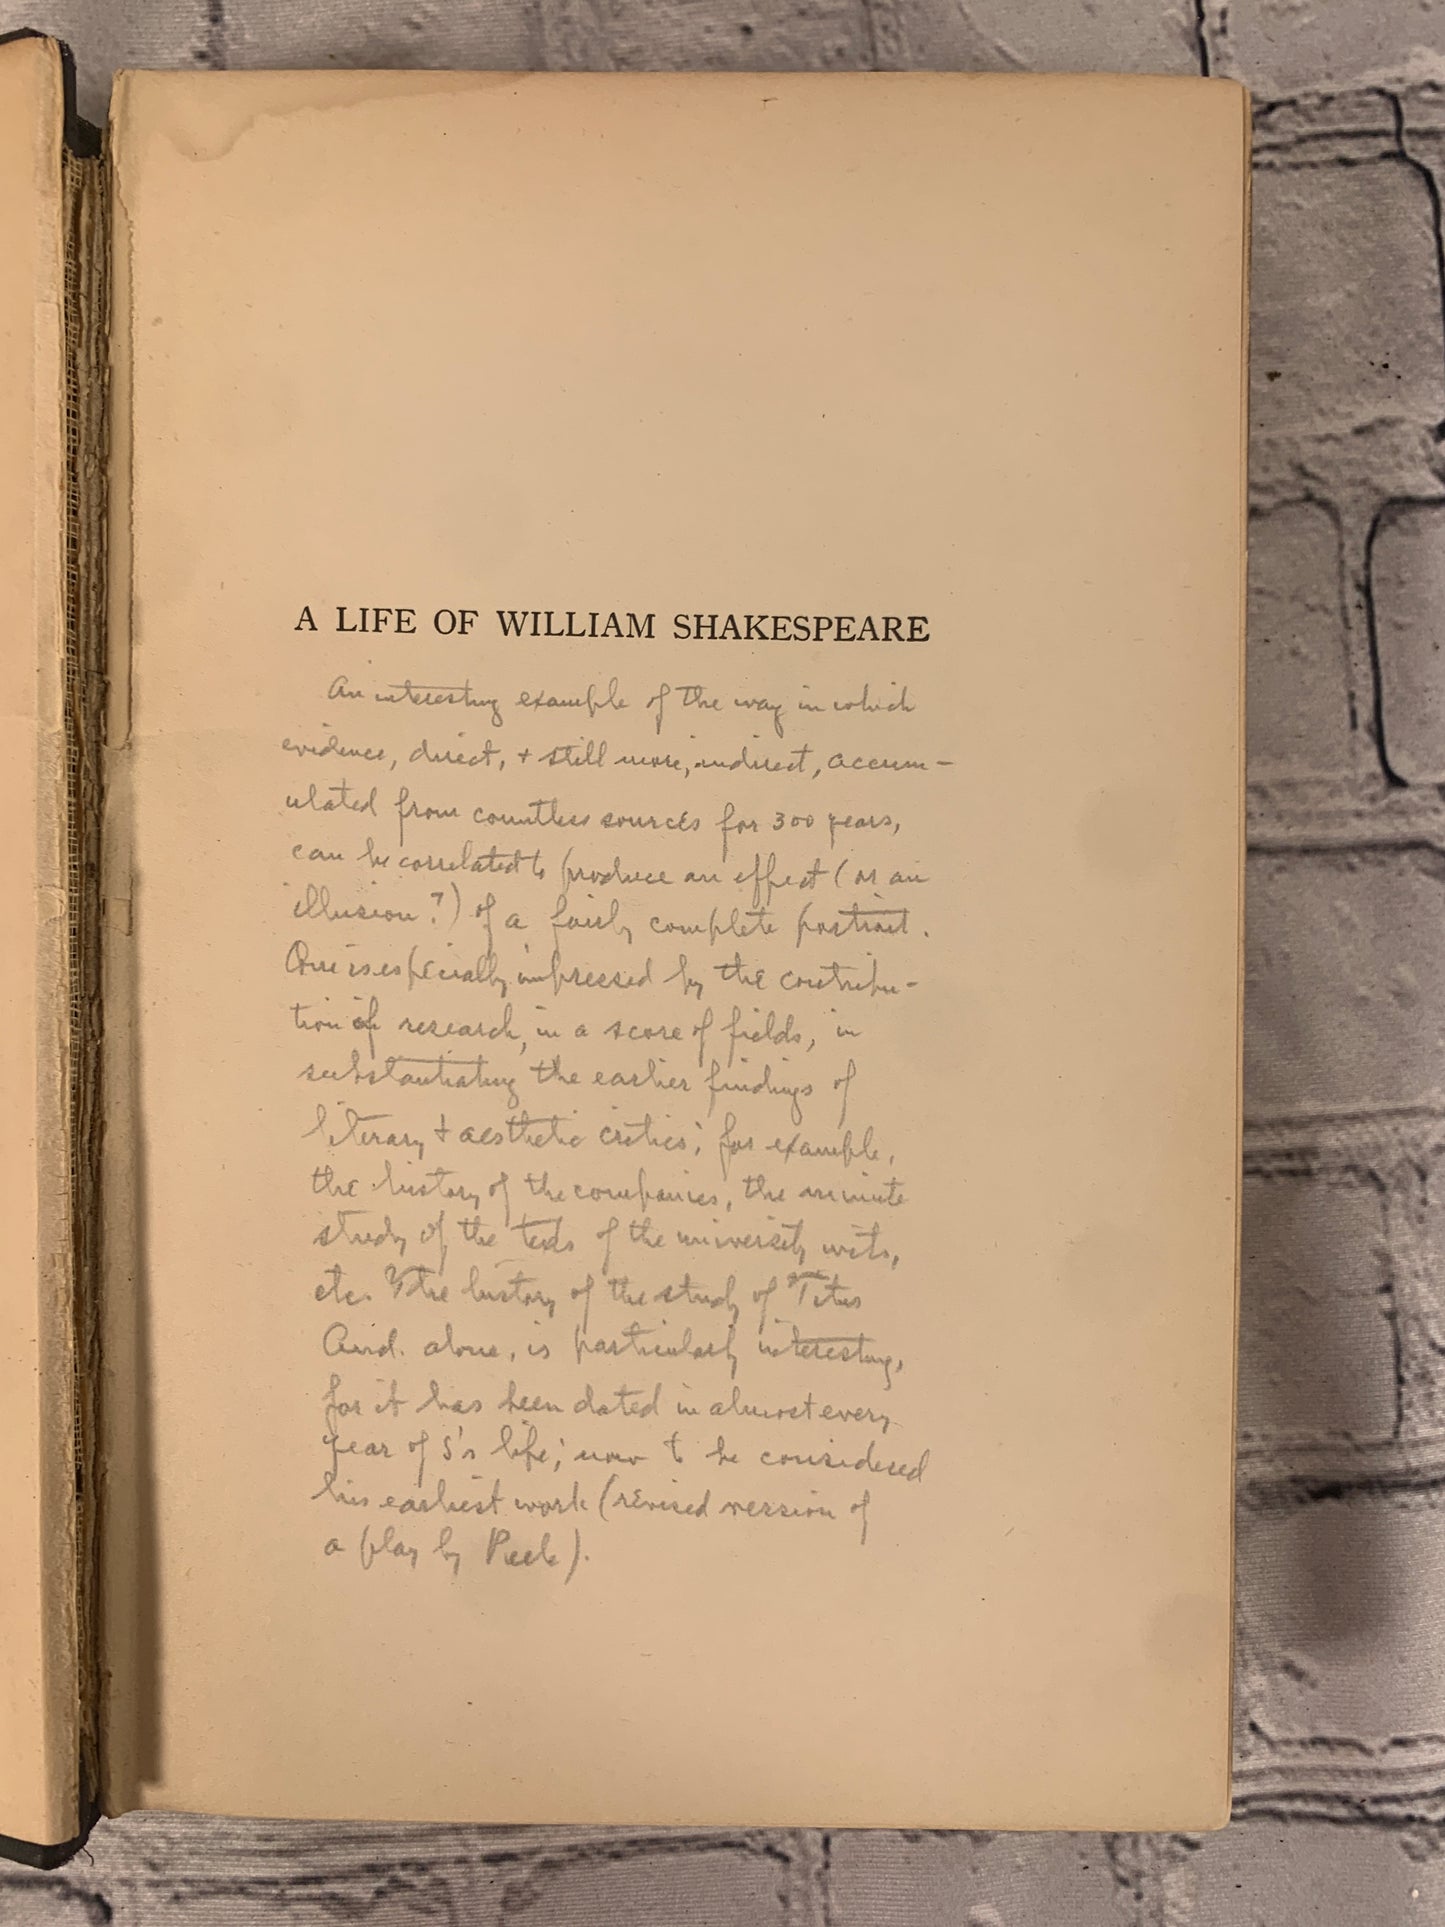 A LIFE OF WILLIAM SHAKESPEARE
An interesting example of the way in which
evidence, direct, + still more, indirect, accum-
ulated from countless sources for 300 years,
can be correlated to produce an effect (or an
illusion?) of a fairly complete portrait.
One is especially impressed by the contribu-
tion of research, in a score of fields, in
substantiating the earlier findings of
literary + aesthetic critics; for example,
the history of the companies, the minute
study of the texts of the university wits,
etc. The history of the study of Titus
And. alone, is particularly interesting,
for it has been dated in almost every
year of S's life; now to be considered
his earliest work (revised version of
a play by Peele).